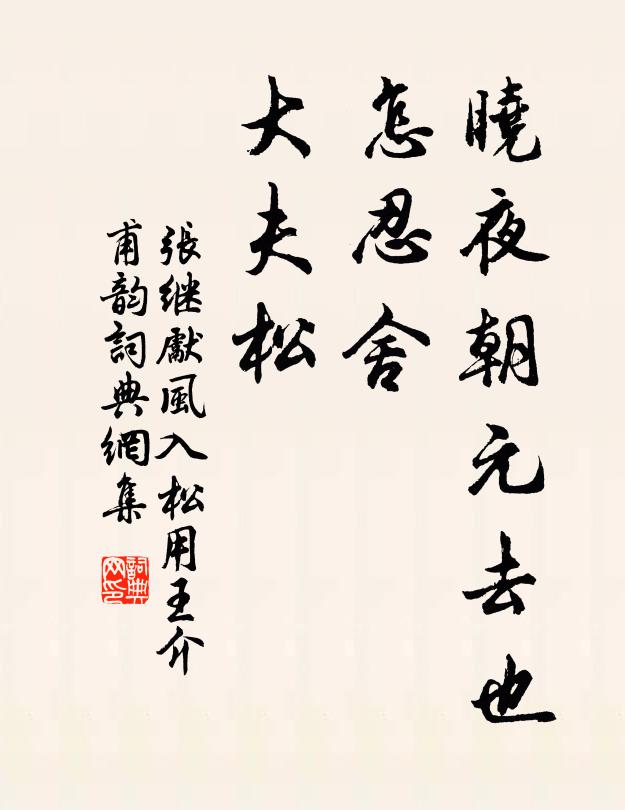 曉夜朝元去也
怎忍舍
大夫松
張継獻風入松用王介
甫韵詞典網集
詞典网印